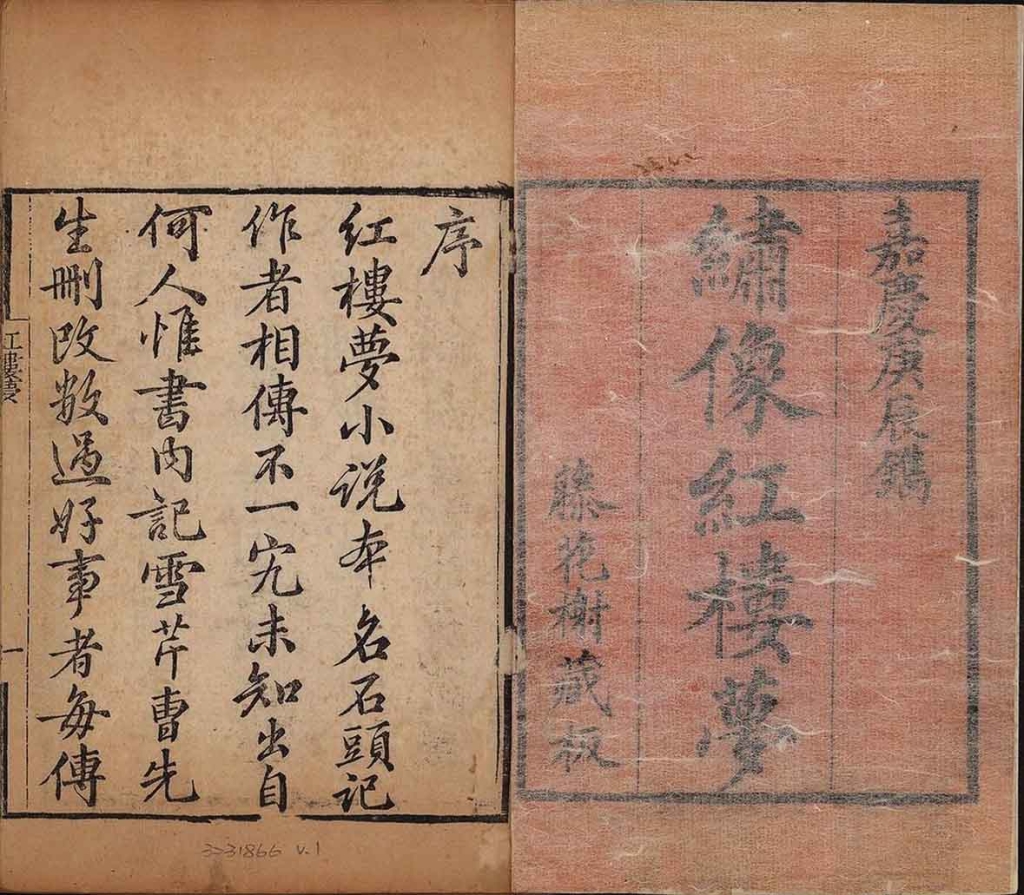 嘉慶庚辰鐫
繡像紅樓夢
藤花榭藏板
序
紅樓夢小説本名石頭記
作者相傳不一究未知出自
何人惟書内記雪芹曹先
生刪改数過好事者每傳
紅樓夢
一
3331866 v.1